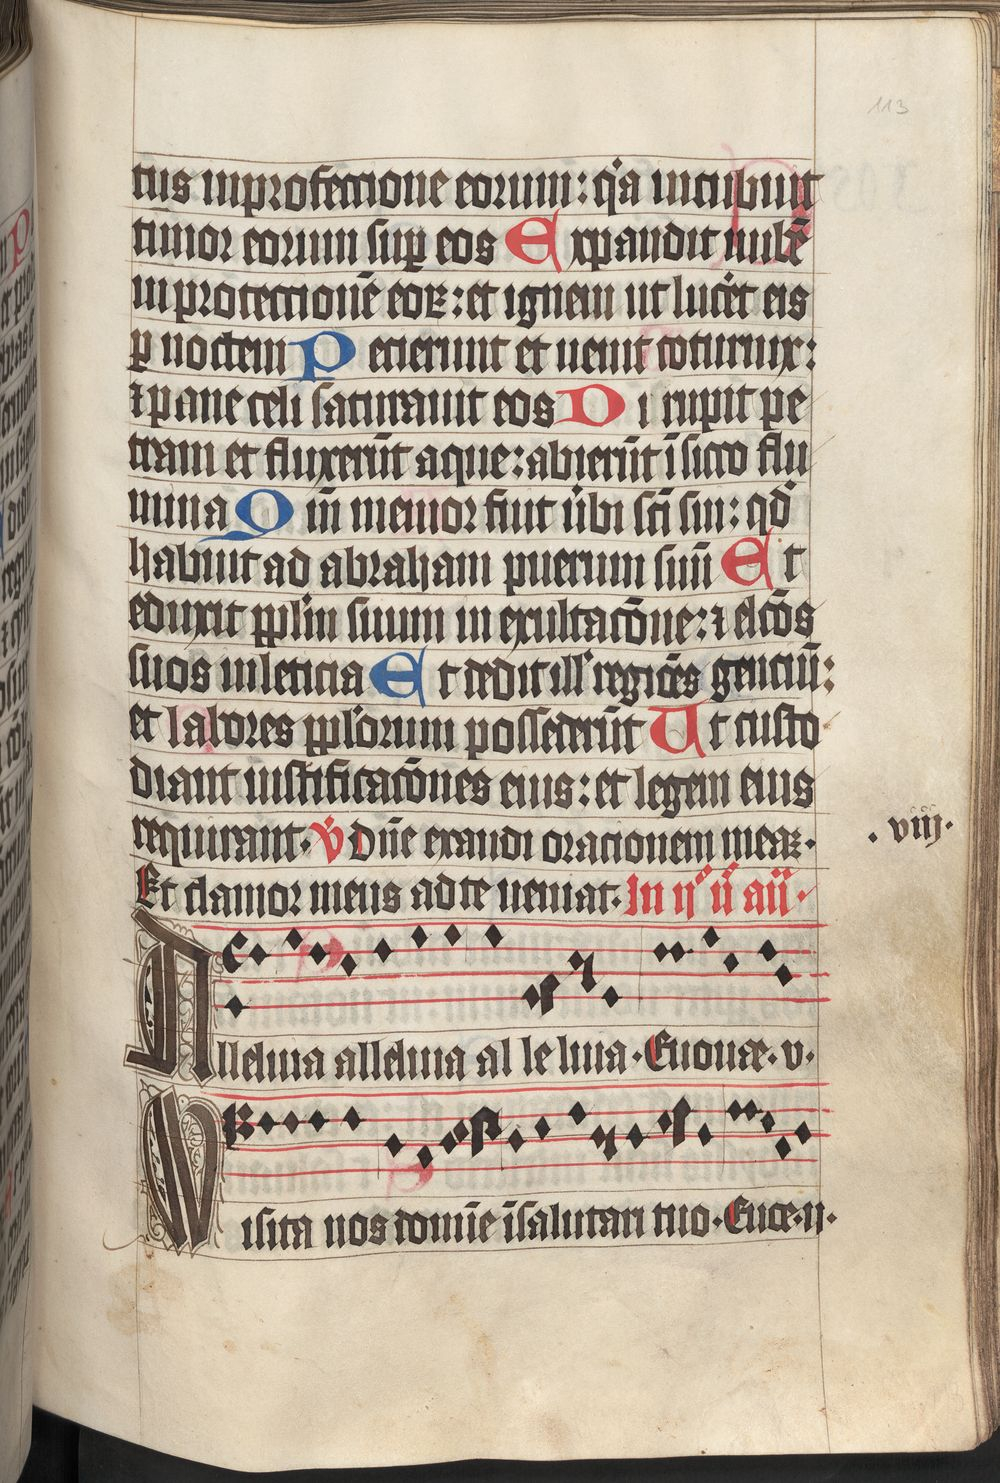 113
tus in profectione eorum: q'a incubuit
timor eorum sup eos Expandit nubē
in protectionē eoꝝ: et ignem ut lucēt eis
ꝑ noctem Petierunt et uenit coturnix:
⁊ pane celi saturauit eos Dirupit pe
tram et fluxerūt aque: abierūt ī sicco flu
mina Qm̄ memor fuit ūbi sc̄i sui: qd̄
habuit ad abraham puerum suū Et
eduxit ppl'm suum in exultacōne: ⁊ elcōs
suos in leticia Et dedit ill' regiōes genciū:
et labores ppl'orum possederūt Ut custo
diant iustificacōnes eius: et legem eius
requirant. v̄ Dn̄e exaudi orationem meaꝫ.
.viij.
Et clamor meus ad te ueniat. In ij° n̄ an̄.
Alleluia alleluia al le luia. Euouae. v.
Visita nos domīe ī salutari tuo. Euce. ij.